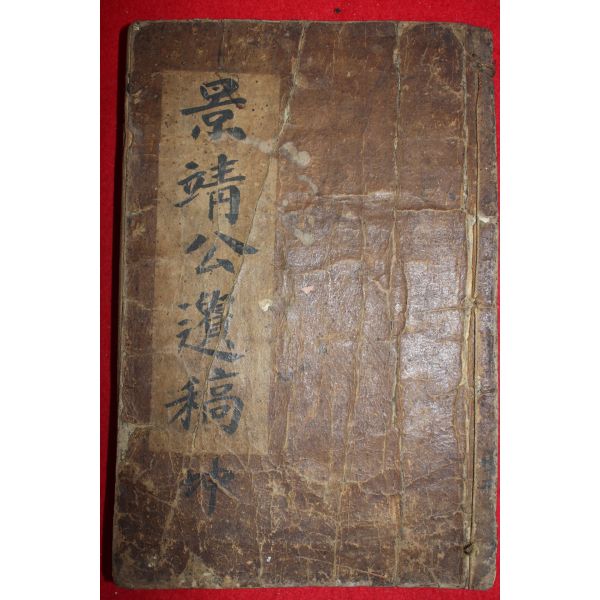 景靖公遺稿 坤